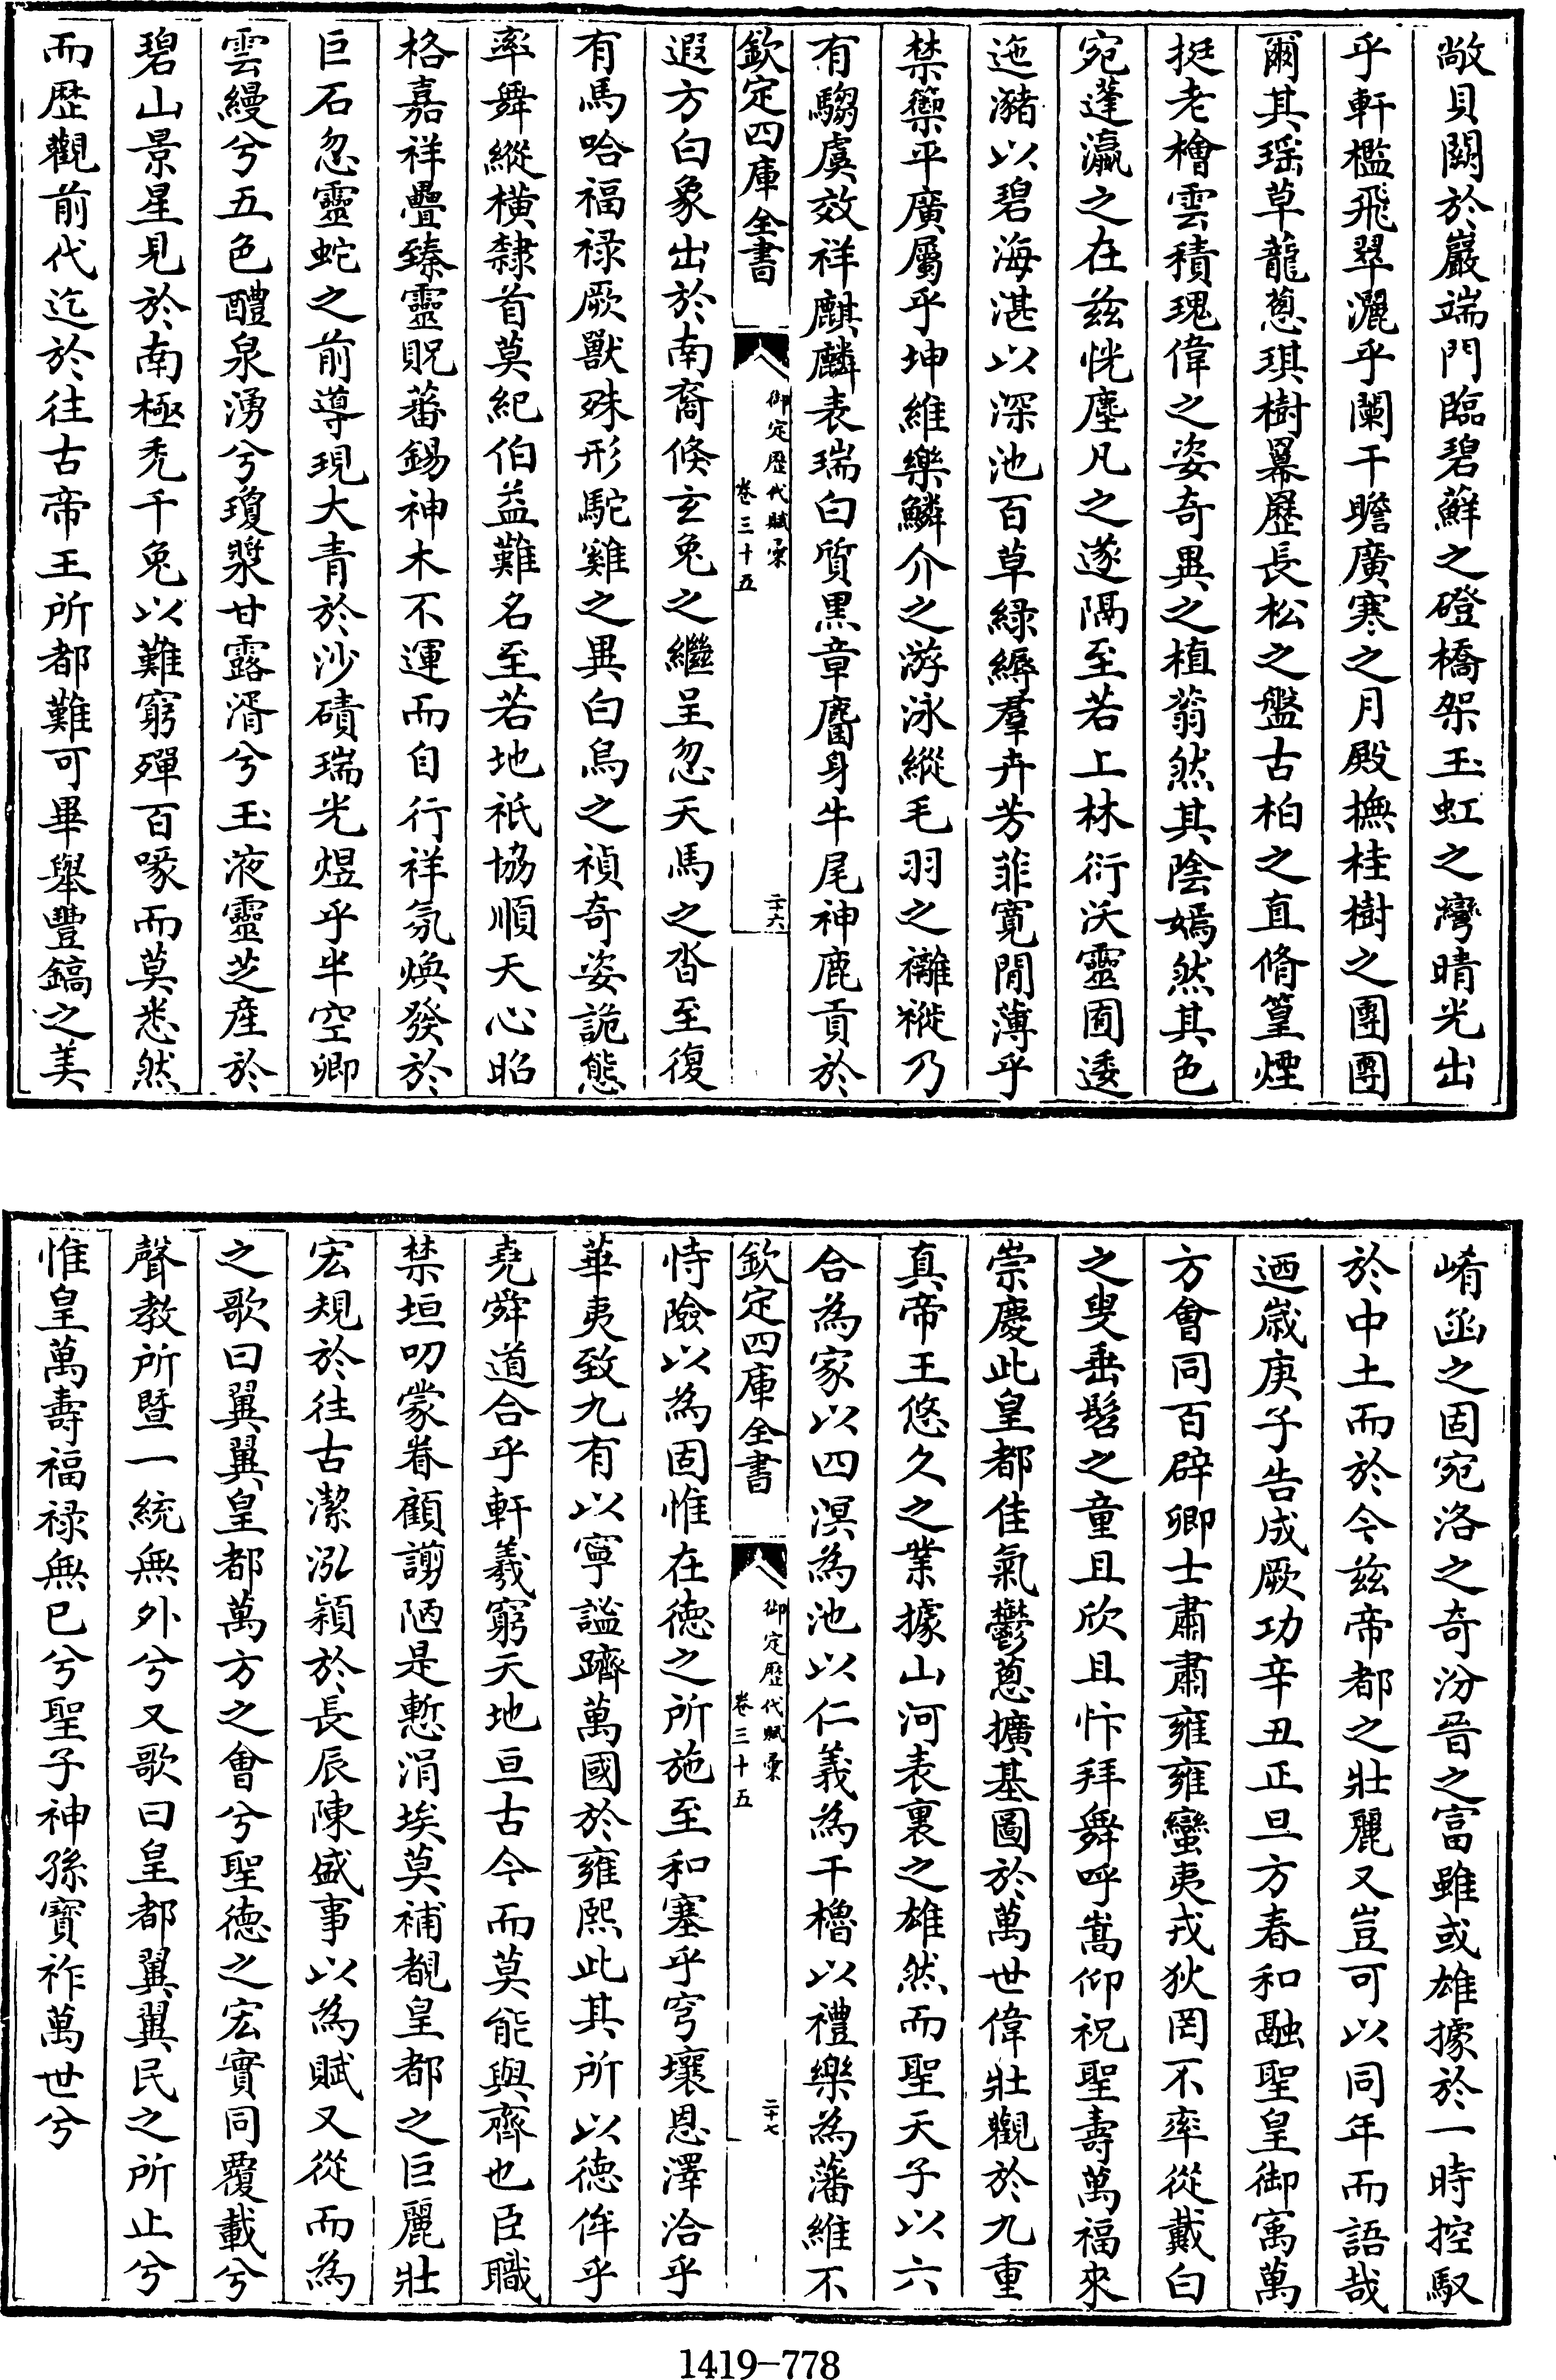 敞貝闕於巖端門臨碧蘚之磴橋架玉虹之灣晴光出
乎軒檻飛翠灑乎闌干瞻廣寒之月殿撫桂樹之團團
爾其瑶草蘢葱琪樹羃歴長松之盤古柏之直脩篁煙
挺老檜雲積瑰偉之姿奇異之植蓊然其陰嫣然其色
宛蓬瀛之在兹恍塵凡之遂隔至若上林衍沃靈囿逶
迤瀦以碧海湛以深池百草緑縟羣卉芳菲寛閒薄乎
禁籞平廣屬乎坤維樂鱗介之游泳縱毛羽之襳褷乃
有騶虞效祥麒麟表瑞白質黒章麕身牛尾神鹿貢於
欽定四庫全書
御定歴代賦彚
卷三十五
二十六
遐方白象出於南裔倐玄兎之繼呈忽天馬之沓至復
有馬哈福禄厥獸殊形駝雞之異白鳥之禎奇姿詭態
率舞縱横隸首莫紀伯益難名至若地祇協順天心昭
格嘉祥疊臻靈貺蕃錫神木不運而自行祥氛煥發於
巨石忽靈蛇之前導現大青於沙磧瑞光煜乎半空卿
雲縵兮五色醴泉湧兮瓊漿甘露湑兮玉液靈芝産於
碧山景星見於南極禿千兎以難窮殫百喙而莫悉然
而歴觀前代迄於往古帝王所都難可畢舉豐鎬之美
崤函之固宛洛之奇汾晉之富雖或雄據於一時控馭
於中土而於今兹帝都之壯麗又豈可以同年而語哉
迺嵗庚子告成厥功辛丑正旦方春和融聖皇御寓萬
方會同百辟卿士肅肅雍雍蠻夷戎狄罔不率從戴白
之叟垂髫之童且欣且忭拜舞呼嵩仰祝聖壽萬福來
崇慶此皇都佳氣鬱葱擴基圖於萬世偉壯觀於九重
真帝王悠久之業據山河表裏之雄然而聖天子以六
合為家以四溟為池以仁義為干櫓以禮樂為藩維不
欽定四庫全書
御定歴代賦彚
卷三十五
二十七
恃險以為固惟在徳之所施至和塞乎穹壤恩澤洽乎
華夷致九有以寧謐躋萬國於雍熙此其所以徳侔乎
堯舜道合乎軒羲窮天地亘古今而莫能與齊也臣職
禁垣叨蒙眷顧謭陋是慙涓埃莫補覩皇都之巨麗壯
宏規於往古潔泓穎於長辰陳盛事以為賦又從而為
之歌曰翼翼皇都萬方之會兮聖徳之宏實同覆載兮
聲教所曁一統無外兮又歌曰皇都翼翼民之所止兮
惟皇萬壽福禄無已兮聖子神孫寳祚萬世兮
1419-778